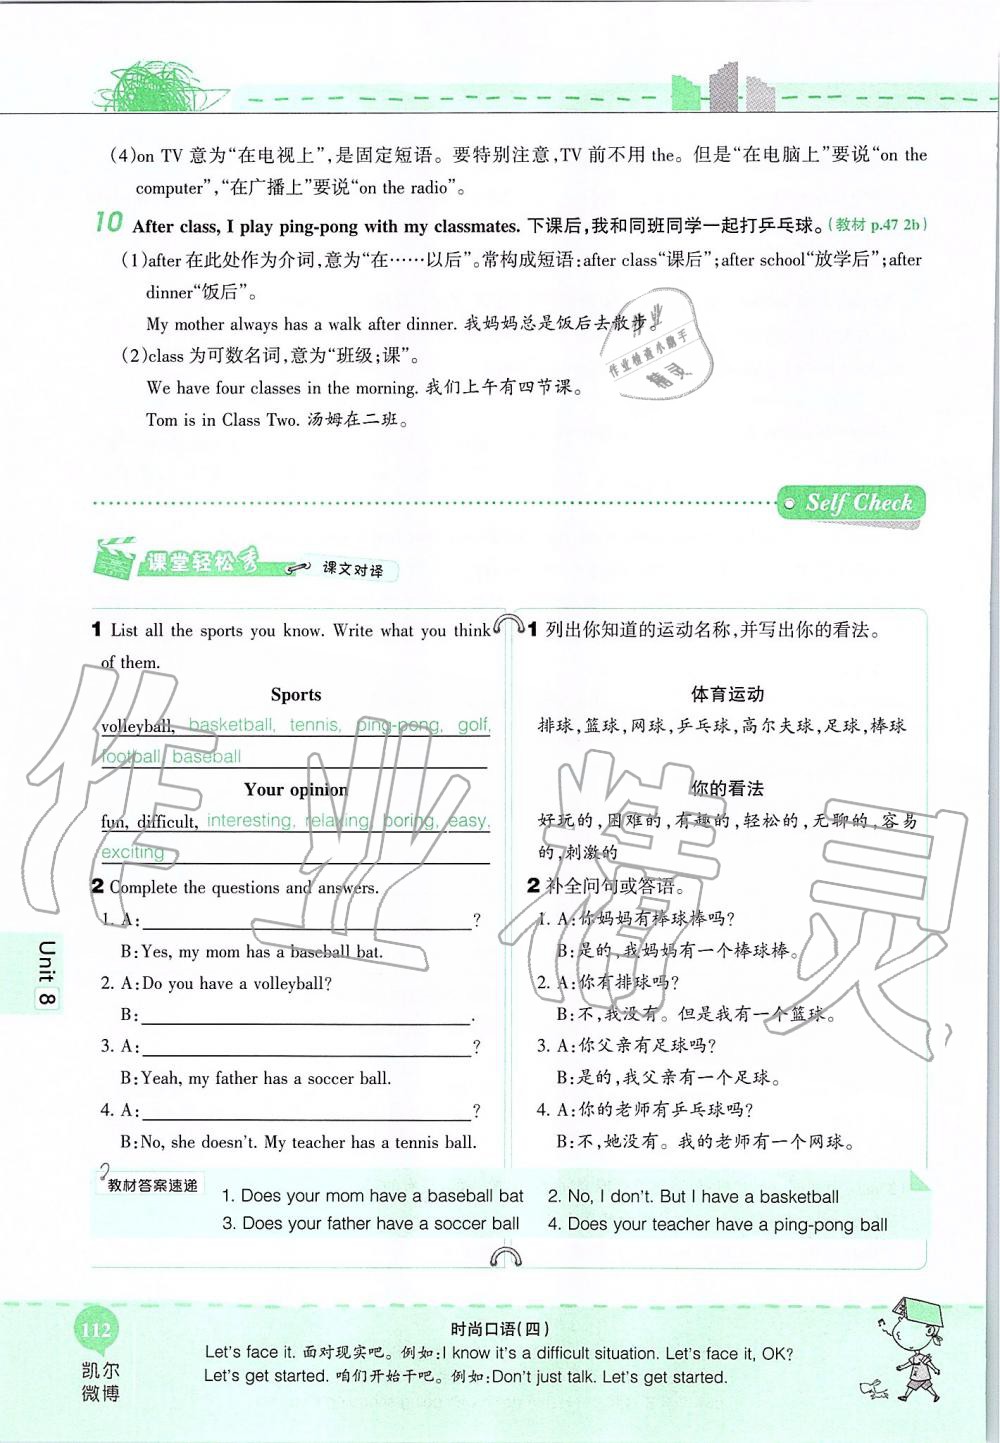 (4)on TV 意为“在电视上”,是固定短语。要特别注意,TV 前不用 the。但是“在电脑上”要说“on the
computer”,“在广播上”要说“on the radio”。
10 After class, I play ping-pong with my classmates. 下课后,我和同班同学一起打乒乓球。(教材 p.47 2b)
(1)after 在此处作为介词,意为“在……以后”。常构成短语:after class“课后”;after school“放学后”;after
dinner“饭后”。
My mother always has a walk after dinner. 我妈妈总是饭后去散步。
(2)class 为可数名词,意为“班级;课”。
We have four classes in the morning. 我们上午有四节课。
Tom is in Class Two. 汤姆在二班。
作业
作业检查小助手
精灵
Self Check
课堂轻松秀 课文对译
1 List all the sports you know. Write what you think
of them.
Sports
volleyball, basketball, tennis, ping-pong, golf,
football, baseball
Your opinion
fun, difficult, interesting, relaxing, boring, easy,
exciting
2 Complete the questions and answers.
1. A: ?
B:Yes, my mom has a baseball bat.
2. A:Do you have a volleyball?
B: .
3. A: ?
B:Yeah, my father has a soccer ball.
4. A: ?
B:No, she doesn't. My teacher has a tennis ball.
1 列出你知道的运动名称,并写出你的看法。
体育运动
排球,篮球,网球,乒乓球,高尔夫球,足球,棒球
你的看法
好玩的,困难的,有趣的,轻松的,无聊的,容易
的,刺激的
2 补全问句或答语。
1. A:你妈妈有棒球棒吗?
B:是的,我妈妈有一个棒球棒。
2. A:你有排球吗?
B:不,我没有。但是我有一个篮球。
3. A:你父亲有足球吗?
B:是的,我父亲有一个足球。
4. A:你的老师有乒乓球吗?
B:不,她没有。我的老师有一个网球。
教材答案速递
1. Does your mom have a baseball bat 2. No, I don't. But I have a basketball
3. Does your father have a soccer ball 4. Does your teacher have a ping-pong ball
作业精灵
Unit 8
112
凯尔
微博
时尚口语(四)
Let's face it. 面对现实吧。例如:I know it's a difficult situation. Let's face it, OK?
Let's get started. 咱们开始干吧。例如:Don't just talk. Let's get started.